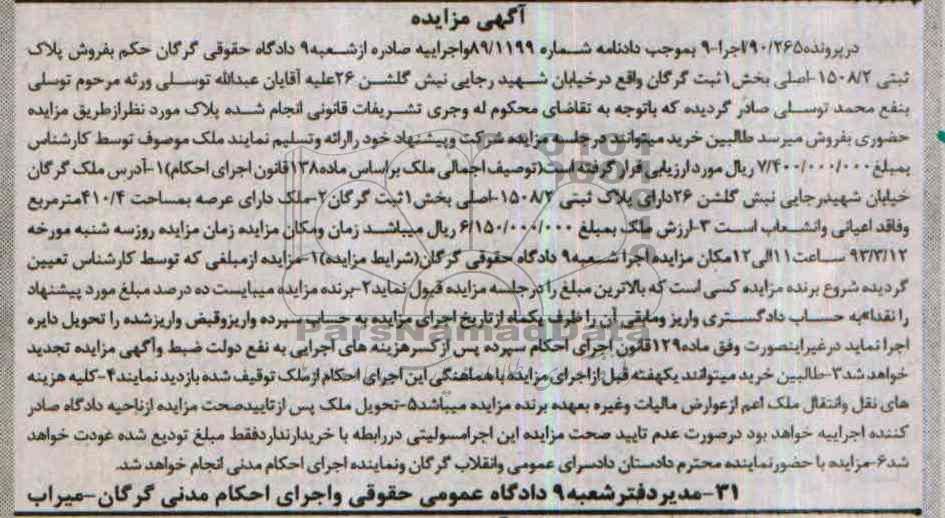 آگهی مزایده
درپرونده۹۰/۲۶۵/اجرا-۹ بموجب دادنامه شماره ۸۹/۱۱۹۹واجراییه صادره ازشعبه۹ دادگاه حقوقی گرگان حکم بفروش پلاک
ثبتی ۱۵۰۸/۲-اصلی بخش۱ثبت گرگان واقع درخیابان شهید رجایی نبش گلشن ۲۶علیه آقایان عبدالله توسلی ورثه مرحوم توسلی
بنفع محمد توسلی صادر گردیده که باتوجه به تقاضای محکوم له وجری تشریفات قانونی انجام شده پلاک مورد نظرازطریق مزایده
حضوری بفروش میرسد طالبین خرید میتوانند درجلسه مزایده شرکت وپیشنهاد خود راارائه وتسلیم نمایند ملک موصوف توسط کارشناس
بمبلغ۷/۴۰۰/۰۰۰/۰۰۰ ریال مورد ارزیابی قرار گرفته است(توصیف اجمالی ملک براساس ماده۱۳۸قانون اجرای احکام)۱-آدرس ملک گرگان
خیابان شهیدرجایی نبش گلشن ۲۶دارای پلاک ثبتی ۱۵۰۸/۲-اصلی بخش۱ثبت گرگان۲-ملک دارای عرصه بمساحت ۴۱۰/۴مترمربع
وفاقد اعیانی وانشعاب است ۳-ارزش ملک بمبلغ ۶/۱۵۰/۰۰۰/۰۰۰ ریال میباشد زمان ومکان مزایده زمان مزایده روزسه شنبه مورخه
۹۳/۳/۱۲ ساعت۱۱الی۱۲مکان مزایده اجرا شعبه۹ دادگاه حقوقی گرگان(شرایط مزایده)۱-مزایده ازمبلغی که توسط کارشناس تعیین
گردیده شروع برنده مزایده کسی است که بالاترین مبلغ را درجلسه مزایده قبول نماید۲-برنده مزایده میبایست ده درصد مبلغ مورد پیشنهاد
را نقدا"به حساب دادگستری واریز ومابقی آن را ظرف یکماه ازتاریخ اجرای مزایده به حساب سپرده واریزوقبض واریزشده را تحویل دایره
اجرا نماید درغیراینصورت وفق ماده۱۲۹قانون اجرای احکام سپرده پس ازکسرهزینه های اجرایی به نفع دولت ضبط وآگهی مزایده تجدید
خواهد شد۳-طالبین خرید میتوانند یکهفته قبل ازاجرای مزایده باهماهنگی این اجرای احکام ازملک توقیف شده بازدید نمایند۴-کلیه هزینه
های نقل وانتقال ملک اعم ازعوارض مالیات وغیره بعهده برنده مزایده میباشد۵-تحویل ملک پس ازتاییدصحت مزایده ازناحیه دادگاه صادر
کننده اجراییه خواهد بود درصورت عدم تایید صحت مزایده این اجرامسولیتی دررابطه با خریدارنداردفقط مبلغ تودیع شده عودت خواهد
شد۶-مزایده با حضورنماینده محترم دادستان دادسرای عمومی وانقلاب گرگان ونماینده اجرای احکام مدنی انجام خواهد شد.
۳۱-مدیردفترشعبه۹ دادگاه عمومی حقوقی واجرای احکام مدنی گرگان-میراب
ParsNamadData